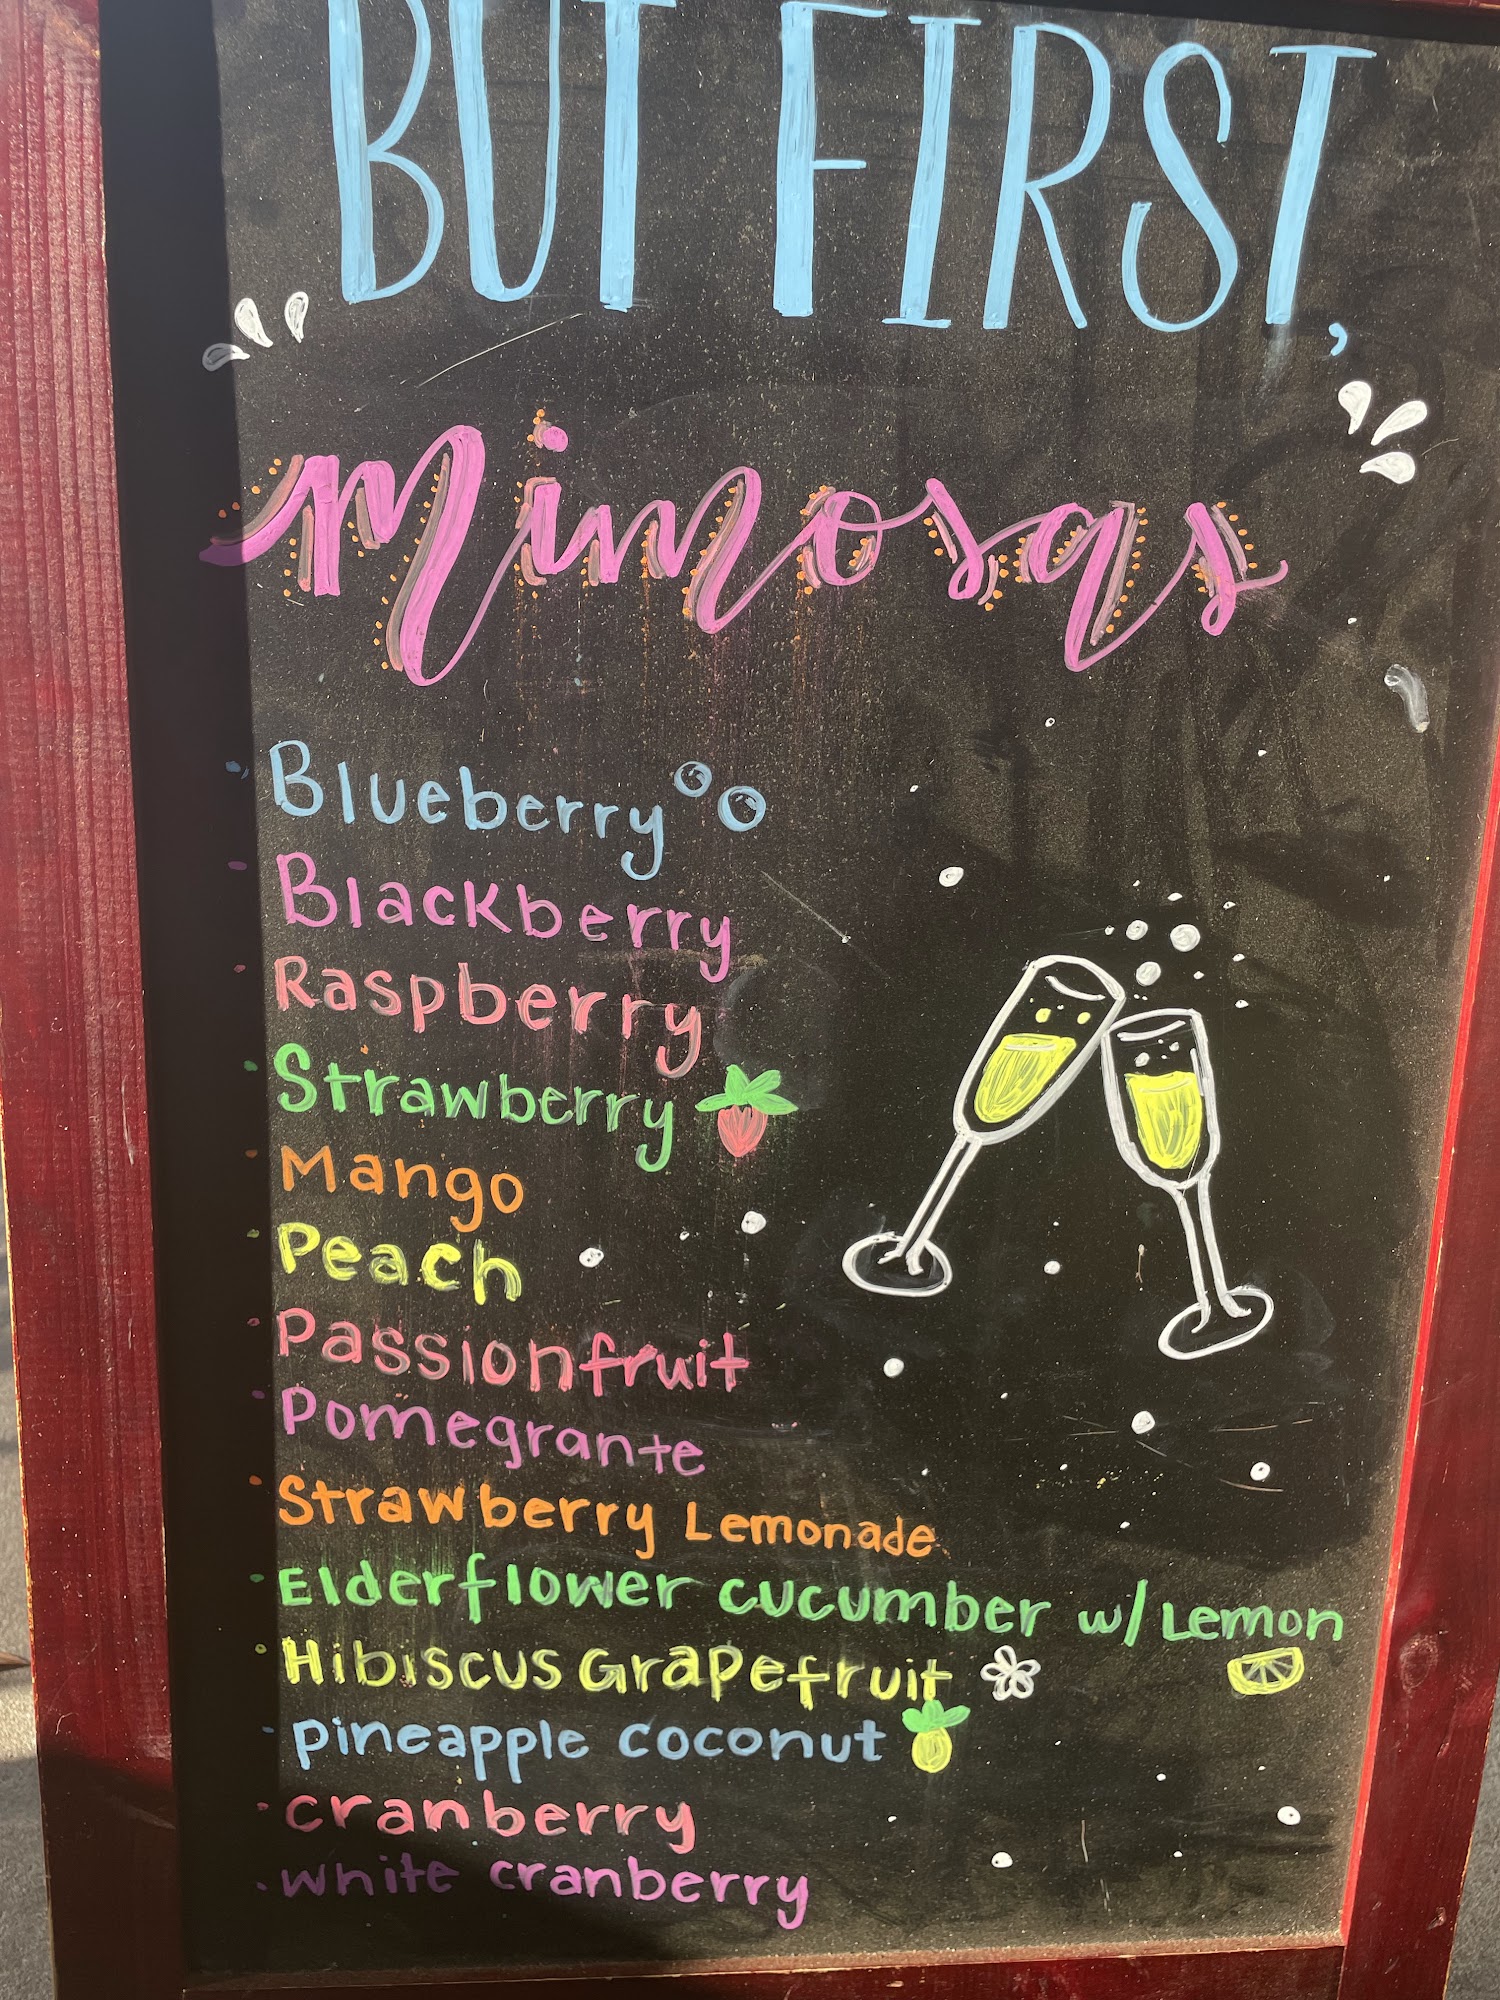 BUT FIRST,
mimosas
· Blueberry
· Blackberry
· Raspberry
· Strawberry
· Mango
· Peach
· Passionfruit
· Pomegrante
· Strawberry Lemonade
· Elderflower cucumber w/ Lemon
· Hibiscus Grapefruit
· pineapple coconut
· cranberry
· white cranberry